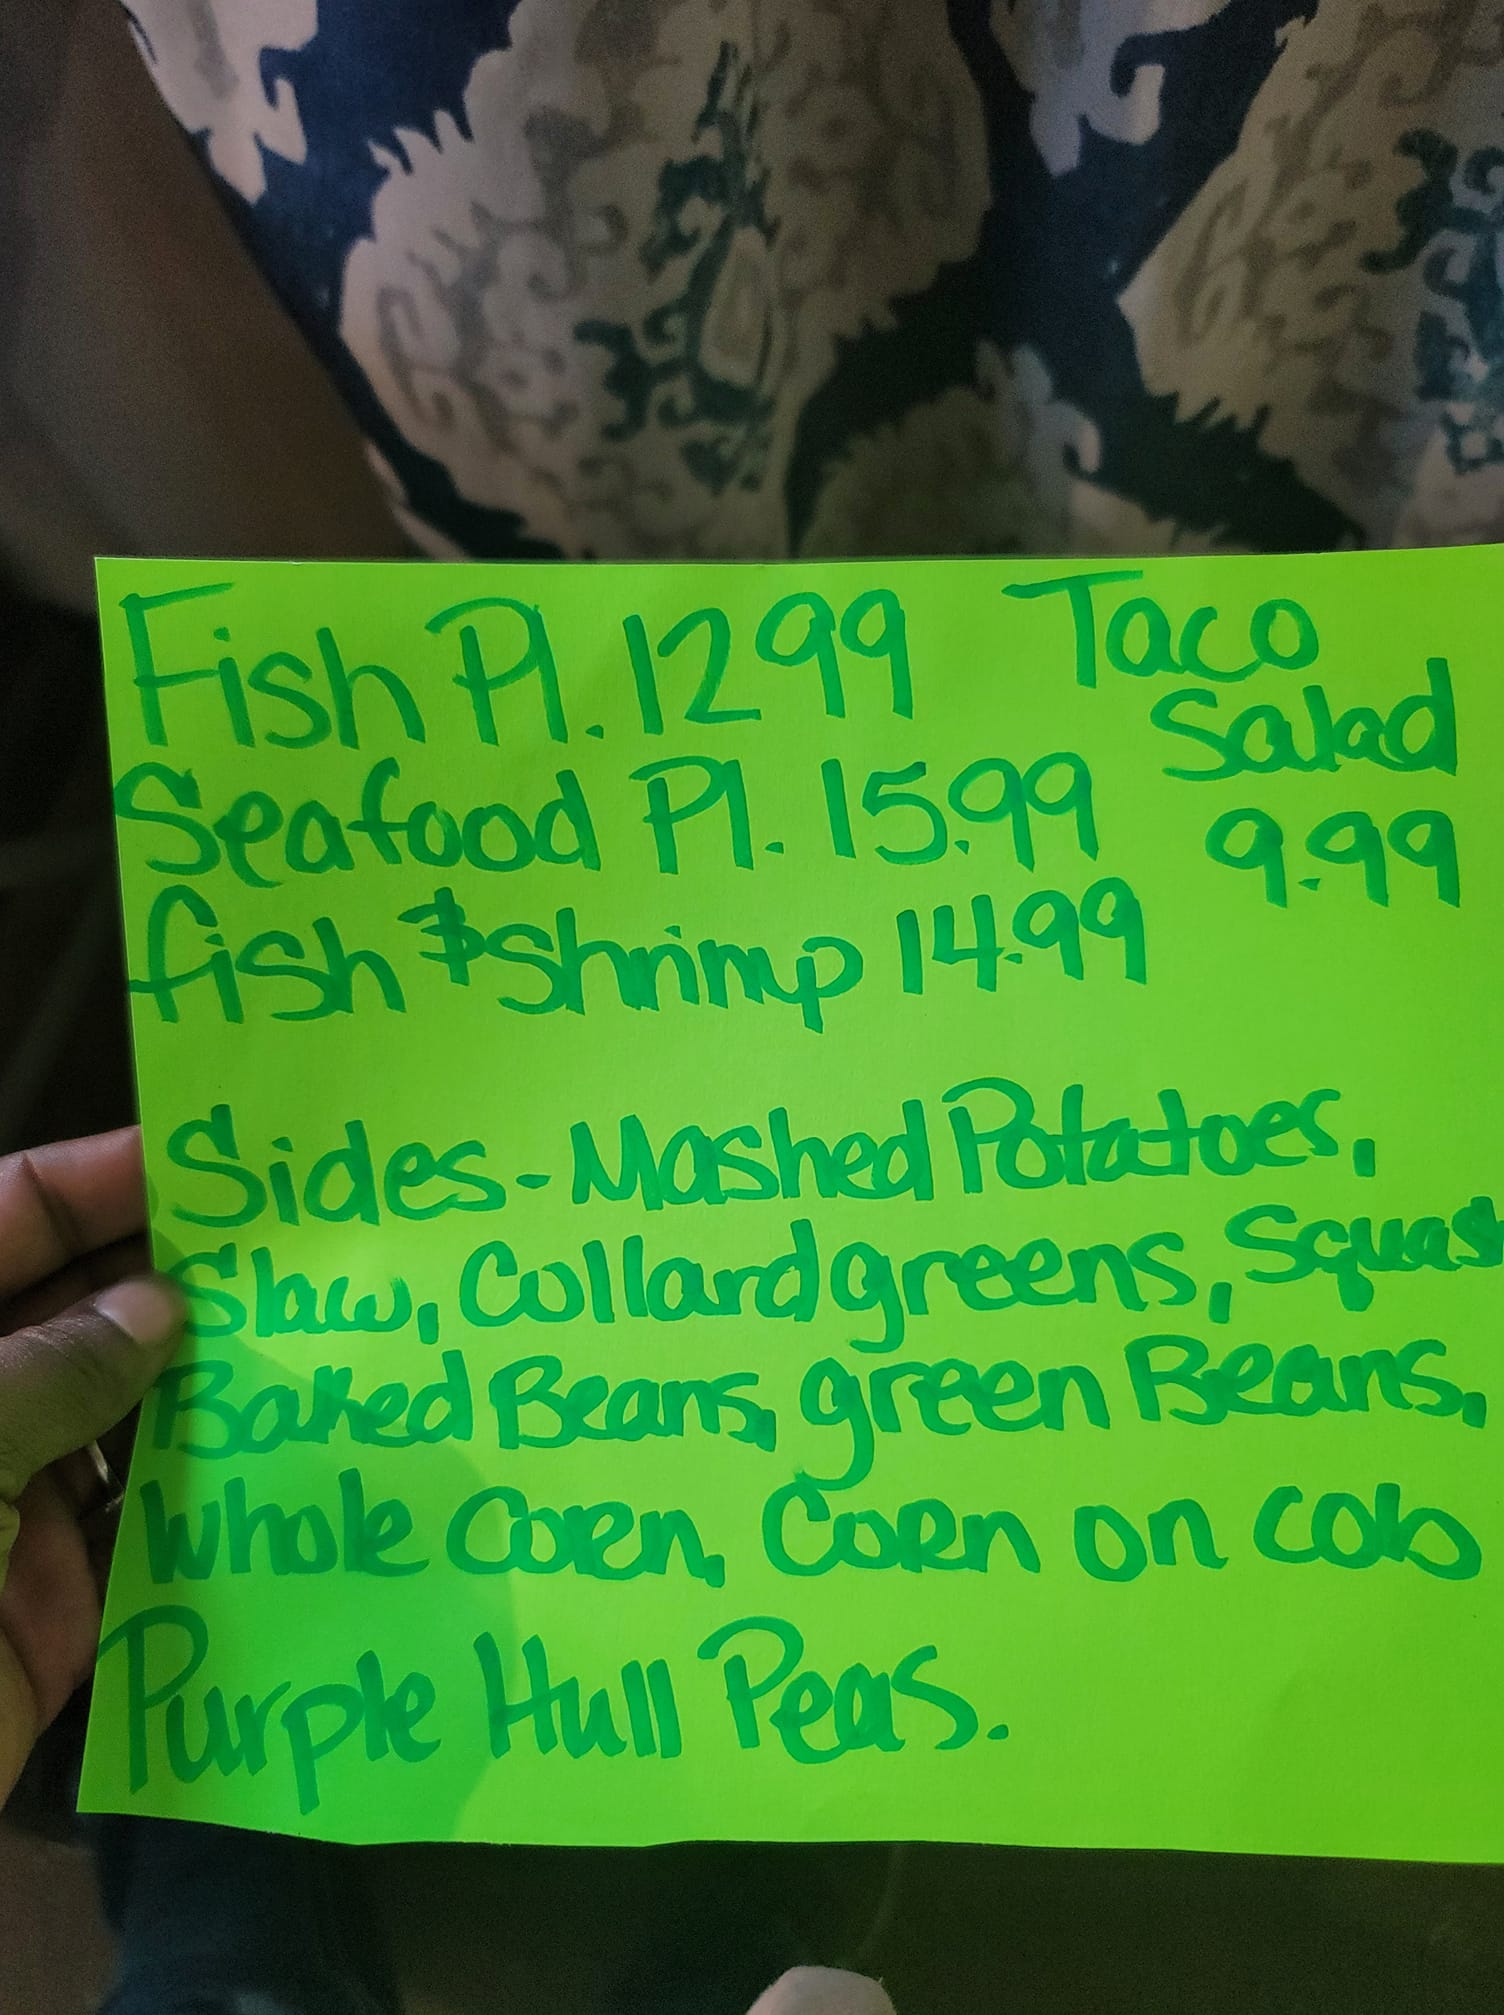 Fish Pl. 12 99
Seafood Pl. 15.99
fish & Shrimp 14.99
Taco
Salad
9.99
Sides - Mashed Potatoes,
Slaw, Collard greens, Squash
Baked Beans, green Beans,
Whole Corn, Corn on cob
Purple Hull Peas.